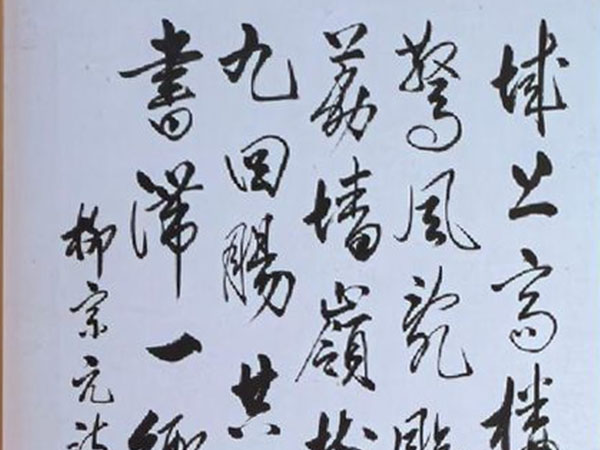 城上高樓
驚風亂颭
荔墻嶺樹
九回腸共
書滯一鄉
柳宗元詩